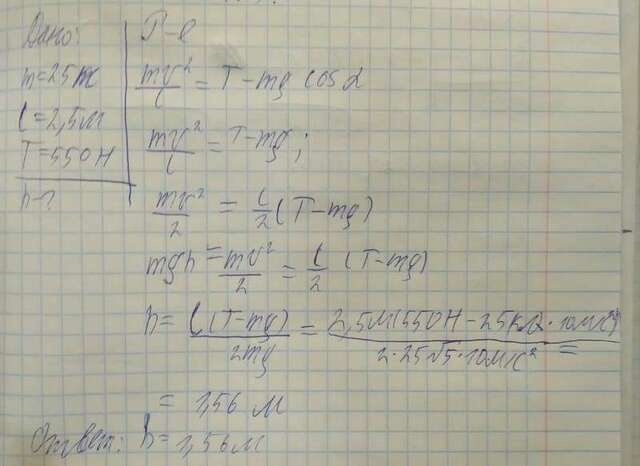 Дано:
m = 25 кг
l = 2,5 м
T = 550 Н
h - ?
Р-е
mv²/l = T - mg cos α
mv²/l = T - mg;
mv²/2 = l/2 (T - mg)
mgh = mv²/2 = l/2 (T - mg)
h = l(T - mg)/2mg = 2,5м(550Н - 25кг · 10м/с²)/2 · 25 · 10м/с² =
= 1,56 м
Ответ: h = 1,56 м